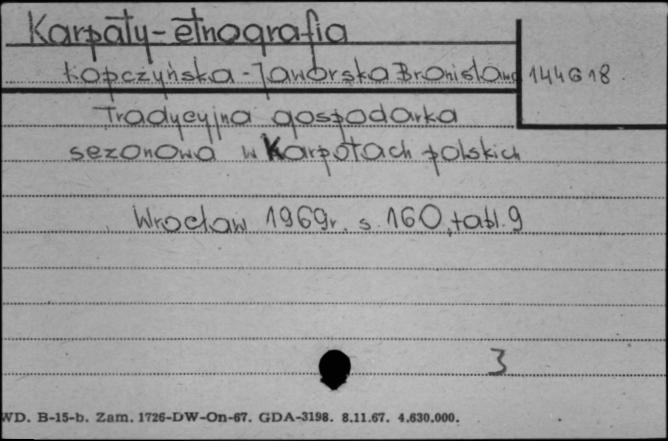 Karpaty-etnografia
Kopczyńska-Jaworska Bronisława 144618
Tradycyjna gospodarka
sezonowa w Karpatach polskich
Wrocław 1969r. s. 160, tabl. 9
3
WD. B-15-b. Zam. 1726-DW-On-67. GDA-3198. 8.11.67. 4.630.000.